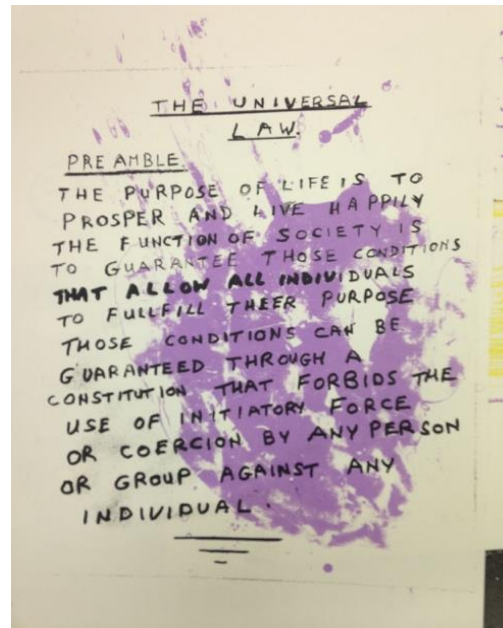 THE UNIVERSAL
LAW.
PREAMBLE
THE PURPOSE OF LIFE IS TO
PROSPER AND LIVE HAPPILY
THE FUNCTION OF SOCIETY IS
TO GUARANTEE THOSE CONDITIONS
THAT ALLOW ALL INDIVIDUALS
TO FULLFILL THEER PURPOSE
THOSE CONDITIONS CAN BE
GUARANTEED THROUGH A
CONSTITUTION THAT FORBIDS THE
USE OF INITIATORY FORCE
OR COERCION BY ANY PERSON
OR GROUP AGAINST ANY
INDIVIDUAL.